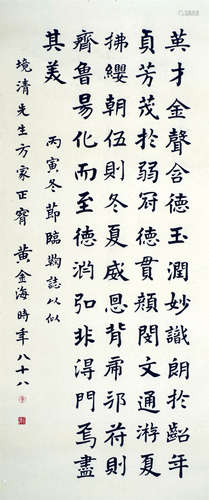 英才金聲含德玉潤妙識朗於齠年
貞芳茂於弱冠德貫顏閔文通游夏
拂纓朝伍則冬夏威恩背邟苻則
齊魯易化而至德弘非淂門焉盡
其美
丙寅冬節臨鞠誌以似
境清先生方家正 黃金海時年八十八